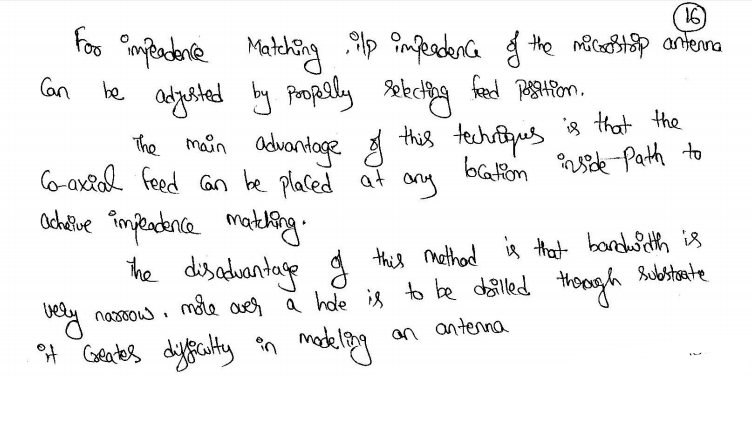 16
For impeadence Matching, i/p impeadence of the microstrip antenna
Can be adjusted by properlly selecting feed position.
The main advantage of this techniques is that the
Co-axial feed can be placed at any location inside Path to
acheive impeadence matching.
The disadvantage of this method is that bandwidth is
very narrow. more over a hole is to be drilled through substrate
it Creates difficulty in modeling an antenna